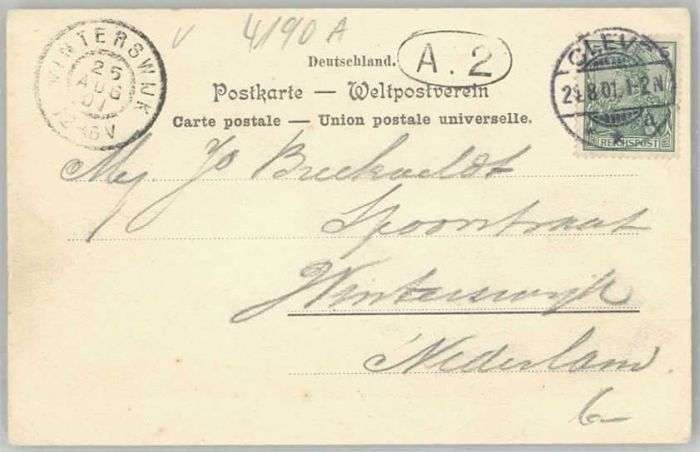 V 4190 A
WINTERSWIJK
25
AUG
01
Deutschland.
A. 2
CLEVE
8.01. 1-2N
5
REICHSPOST
Postkarte – Weltpostverein
Carte postale – Union postale universelle.
Mej. Jo
Spoorstraat
Winterswijk
Nederland.
6-